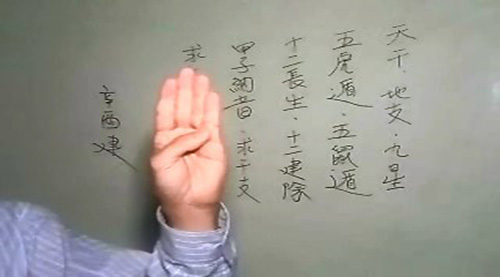 天干、地支、九星
五虎遁、五鼠遁
十二長生、十二建除
甲子納音、求干支
求
辛酉